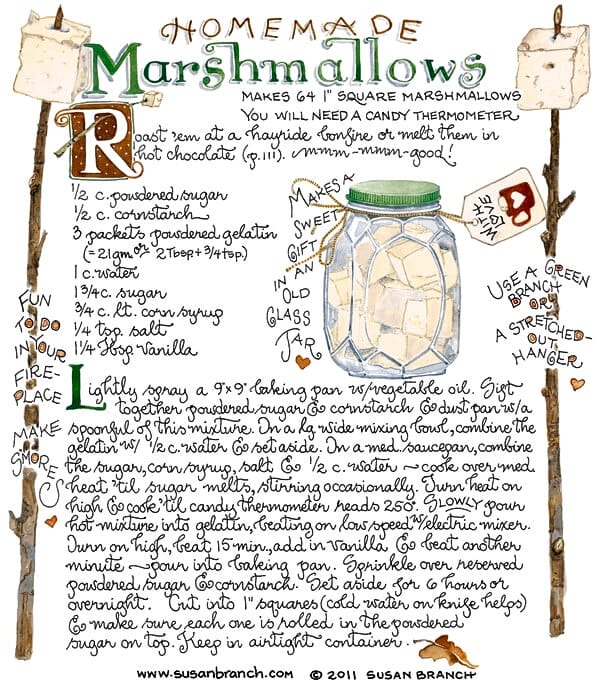 HOMEMADE
Marshmallows
MAKES 64 1" SQUARE MARSHMALLOWS
YOU WILL NEED A CANDY THERMOMETER
Roast 'em at a hayride bonfire or melt them in
hot chocolate (p.111). mmm-mmm-good!
1/2 c. powdered sugar
1/2 c. cornstarch
3 packets powdered gelatin
(=21gm or 2 Tbsp.+ 3/4 tsp.)
1 c. water
1 3/4 c. sugar
3/4 c. lt. corn syrup
1/4 tsp. salt
1 1/4 tbsp. vanilla
MAKES A
SWEET
GIFT
IN AN
OLD
GLASS
JAR
WITH
LOVE
FUN
TO DO
IN YOUR
FIRE-
PLACE
MAKE
S'MORES
USE A GREEN
BRANCH
OR
A STRETCHED-
OUT
HANGER
Lightly spray a 9"x9" baking pan w/vegetable oil. Sift
together powdered sugar & cornstarch & dust pan w/a
spoonful of this mixture. In a lg. wide mixing bowl, combine the
gelatin w/ 1/2 c. water & set aside. In a med. saucepan, combine
the sugar, corn syrup, salt & 1/2 c. water ~ cook over med.
heat 'til sugar melts, stirring occasionally. Turn heat on
high & cook 'til candy thermometer reads 250°. SLOWLY pour
hot mixture into gelatin, beating on low speed w/electric mixer.
Turn on high, beat 15 min., add in vanilla & beat another
minute ~ pour into baking pan. Sprinkle over reserved
powdered sugar & cornstarch. Set aside for 6 hours or
overnight. Cut into 1" squares (cold water on knife helps)
& make sure each one is rolled in the powdered
sugar on top. Keep in airtight container.
www.susanbranch.com © 2011 SUSAN BRANCH